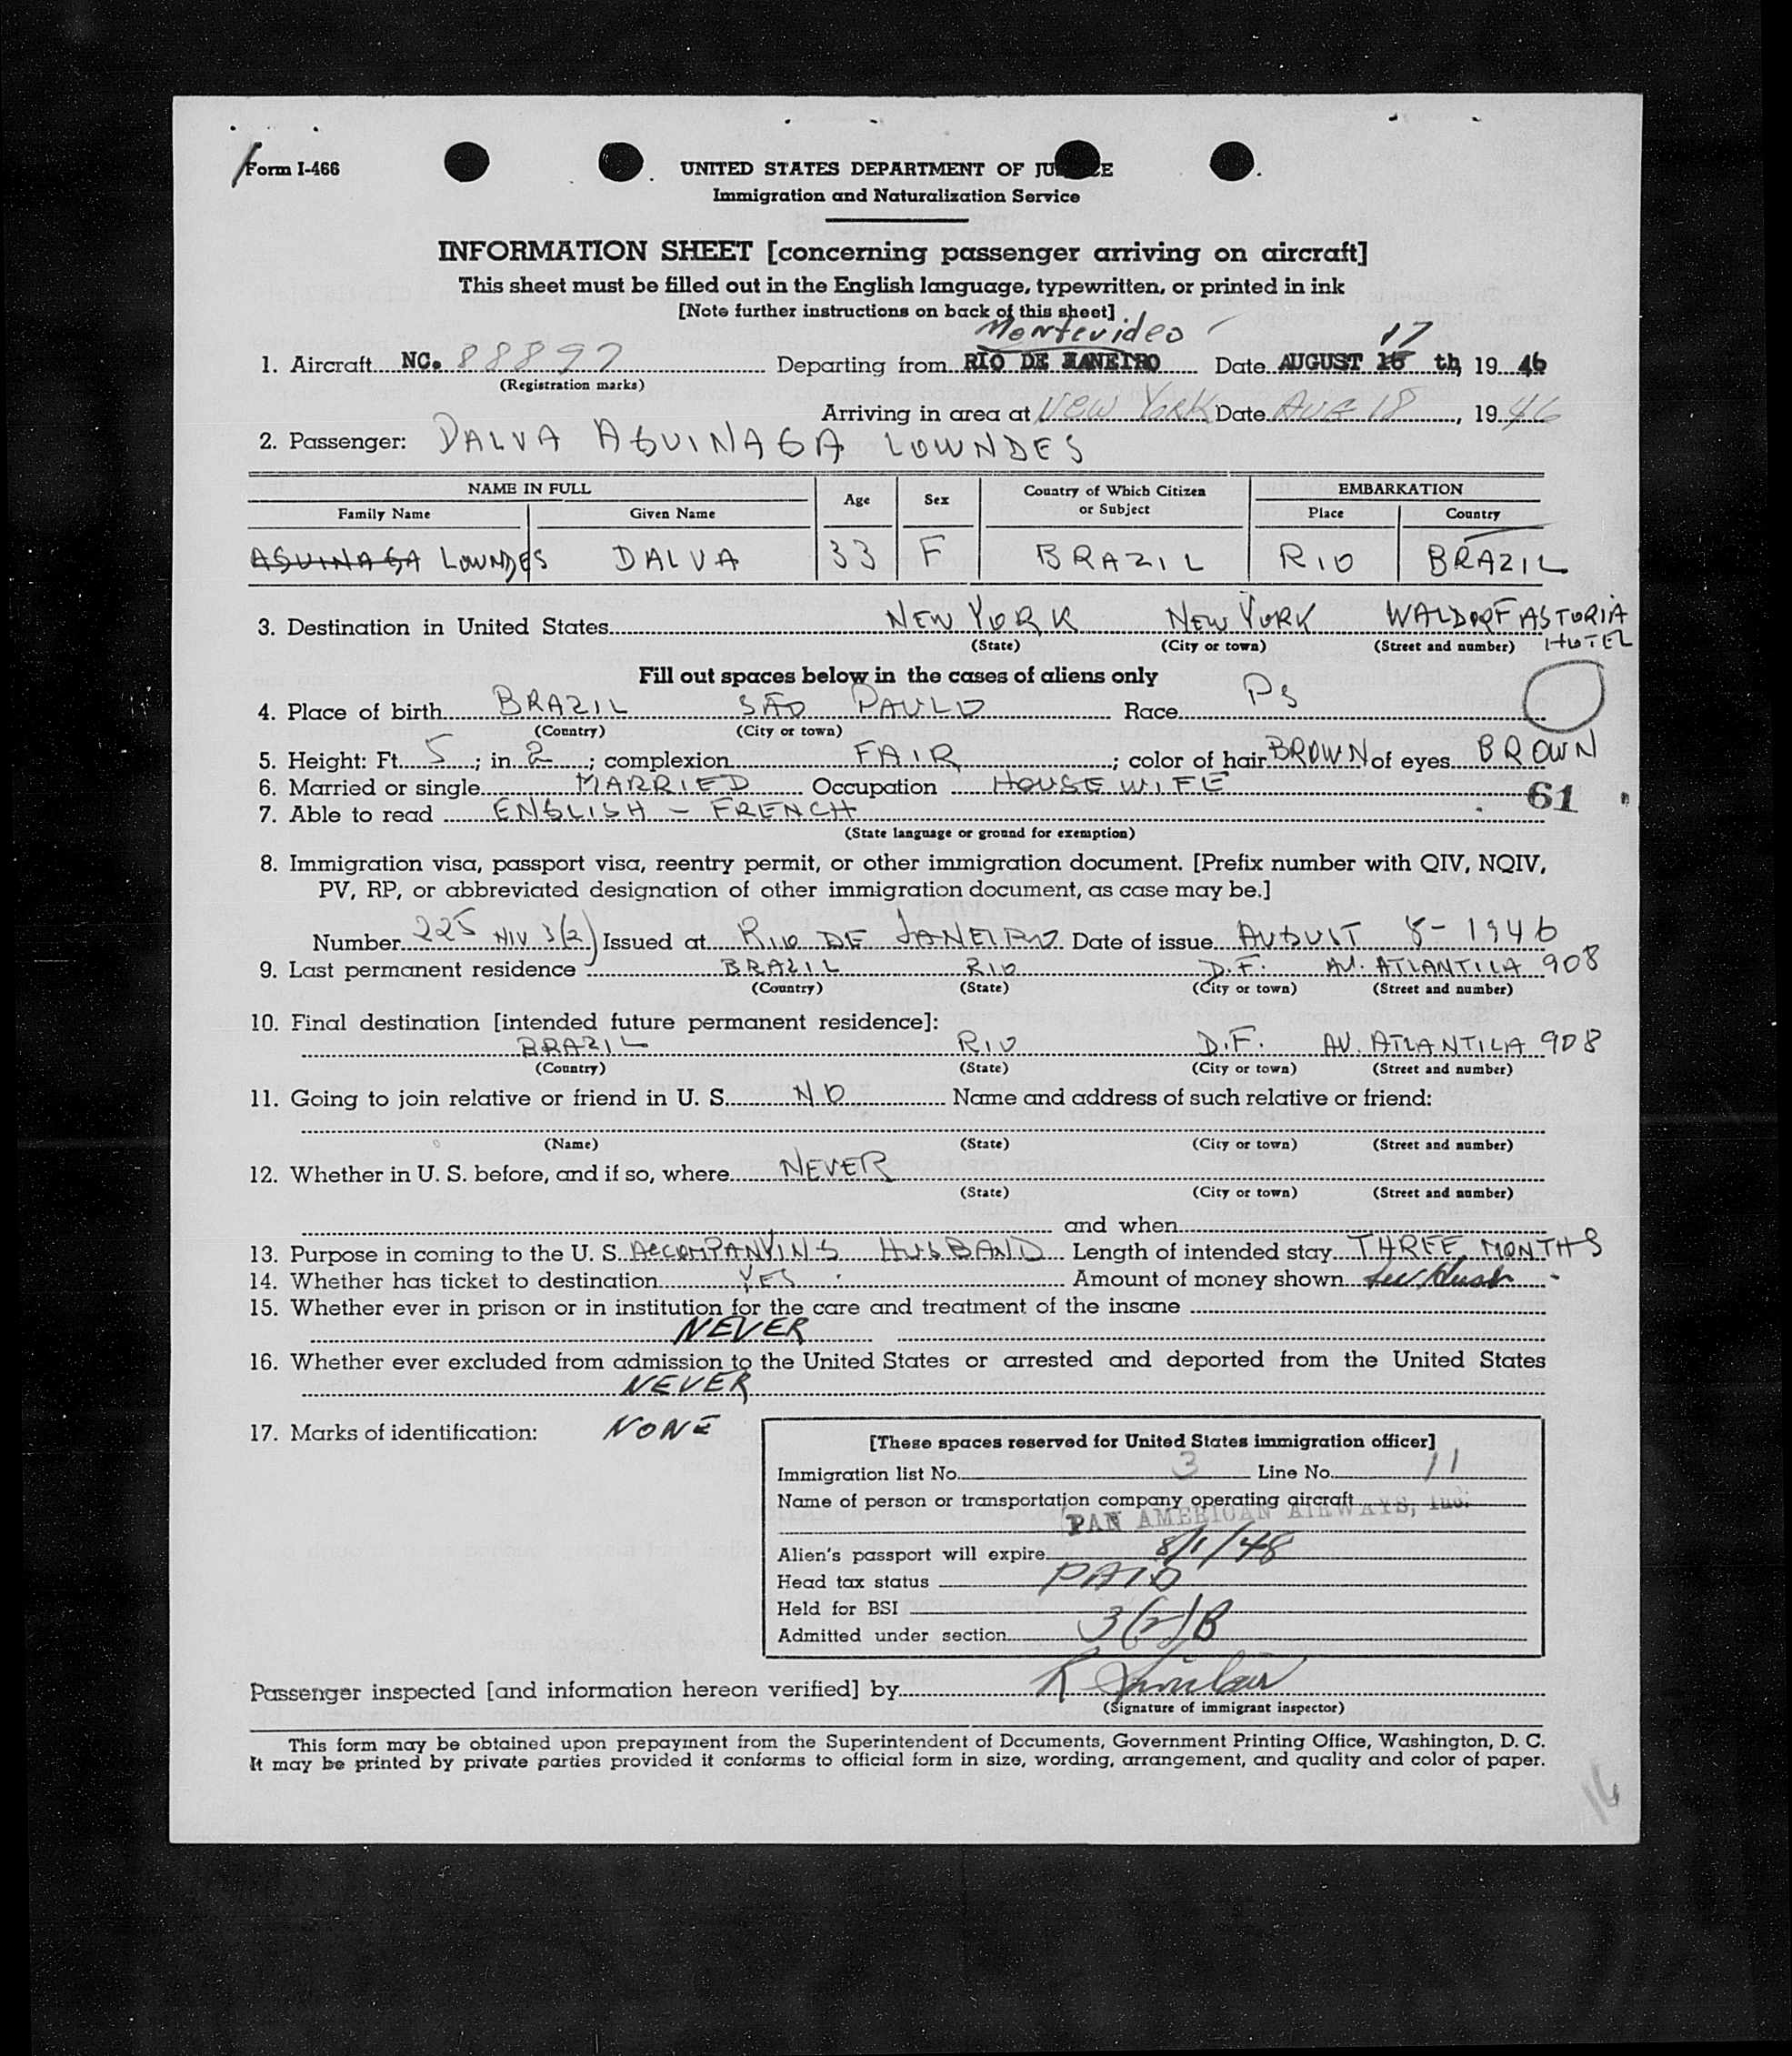 Form I-466
UNITED STATES DEPARTMENT OF JU CE
Immigration and Naturalization Service
INFORMATION SHEET [concerning passenger arriving on aircraft]
This sheet must be filled out in the English language, typewritten, or printed in ink
[Note further instructions on back of this sheet]
Montevideo 17
1. Aircraft NC. 88897 Departing from RIO DE JANEIRO Date AUGUST 15 th, 19 46
(Registration marks)
Arriving in area at NEW YORK Date AUG 18, 19 46
2. Passenger: DALVA AGUINAGA LOWNDES
NAME IN FULL Age Sex Country of Which Citizen or Subject EMBARKATION
Family Name Given Name Place Country
AGUINAGA LOWNDES DALVA 33 F BRAZIL RIO BRAZIL
3. Destination in United States NEW YORK NEW YORK WALDORF ASTORIA HOTEL
(State) (City or town) (Street and number)
Fill out spaces below in the cases of aliens only
4. Place of birth BRAZIL SÃO PAULO Race Ps
(Country) (City or town)
5. Height: Ft. 5; in. 2; complexion FAIR; color of hair BROWN of eyes BROWN
6. Married or single MARRIED Occupation HOUSE WIFE
61
7. Able to read ENGLISH - FRENCH
(State language or ground for exemption)
8. Immigration visa, passport visa, reentry permit, or other immigration document. [Prefix number with QIV, NQIV,
PV, RP, or abbreviated designation of other immigration document, as case may be.]
Number 225 NIV 3(2) Issued at RIO DE JANEIRO Date of issue AUGUST 8-1946
9. Last permanent residence BRAZIL RIO D.F. AV. ATLANTICA 908
(Country) (State) (City or town) (Street and number)
10. Final destination [intended future permanent residence]:
BRAZIL RIO D.F. AV. ATLANTICA 908
(Country) (State) (City or town) (Street and number)
11. Going to join relative or friend in U. S. NO Name and address of such relative or friend:
(Name) (State) (City or town) (Street and number)
12. Whether in U. S. before, and if so, where NEVER
(State) (City or town) (Street and number)
and when
13. Purpose in coming to the U. S. ACCOMPANYING HUSBAND Length of intended stay THREE MONTHS
14. Whether has ticket to destination YES Amount of money shown See Husb
15. Whether ever in prison or in institution for the care and treatment of the insane
NEVER
16. Whether ever excluded from admission to the United States or arrested and deported from the United States
NEVER
17. Marks of identification: NONE
[These spaces reserved for United States immigration officer]
Immigration list No. 3 Line No. 11
Name of person or transportation company operating aircraft
PAN AMERICAN AIRWAYS, Inc.
Alien's passport will expire 8/1/48
Head tax status PAID
Held for BSI
Admitted under section 3(2)B
Passenger inspected [and information hereon verified] by R Sinclair
(Signature of immigrant inspector)
This form may be obtained upon prepayment from the Superintendent of Documents, Government Printing Office, Washington, D. C.
It may be printed by private parties provided it conforms to official form in size, wording, arrangement, and quality and color of paper.
16